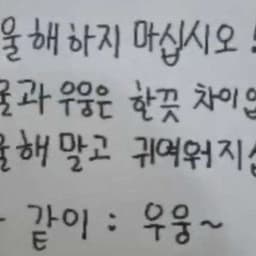 울해하지 마십시오!
울과 우웅은 한끗 차이입
울해 말고 귀여워지십
같이 : 우웅~